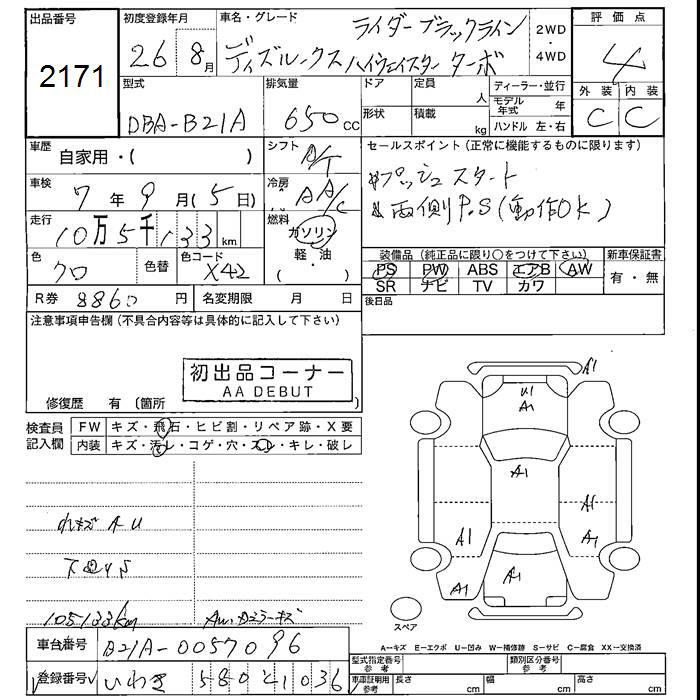 出品番号
2171
初度登録年月
26 8月
車名・グレード
ライダーブラックライン
ディズルークスハイウェイスター ターボ
2WD
・
4WD
評価点
4
外装 内装
C C
型式
DBA-B21A
排気量
650cc
ドア
定員
人
形状
積載
kg
ディーラー・並行
モデル年式 年
ハンドル 左・右
車歴
自家用・( )
シフト
A/T
セールスポイント(正常に機能するものに限ります)
プッシュスタート
両側P.S(動作OK)
車検
7年9月(5日)
冷房
AA/C
走行
10万5千133km
燃料
ガソリン
・
軽油
・
( )
色
クロ
色替
色コード
X42
装備品(純正品に限り○をつけて下さい)
PS PW ABS エアB AW
SR ナビ TV カワ
新車保証書
有・無
R券 8860円
名変期限 月 日
後日品
注意事項申告欄(不具合内容等は具体的に記入して下さい)
初出品コーナー
AA DEBUT
修復歴 有(箇所
検査員記入欄
FW キズ・飛石・ヒビ割・リペア跡・X要
内装 キズ・汚レ・コゲ・穴・スレ・キレ・破レ
A1
U1
A1
A1
A1
A1
A1
A1
A1
キズ AU
105133km
スペア
A…キズ E…エクボ U…凹み W…補修跡 S…サビ C…腐食 XX…交換済
車台番号 B21A-0057096
登録番号 いわき 580 41036
型式指定番号参考
類別区分番号参考
車庫証明用参考 長さ cm 幅 cm 高さ cm